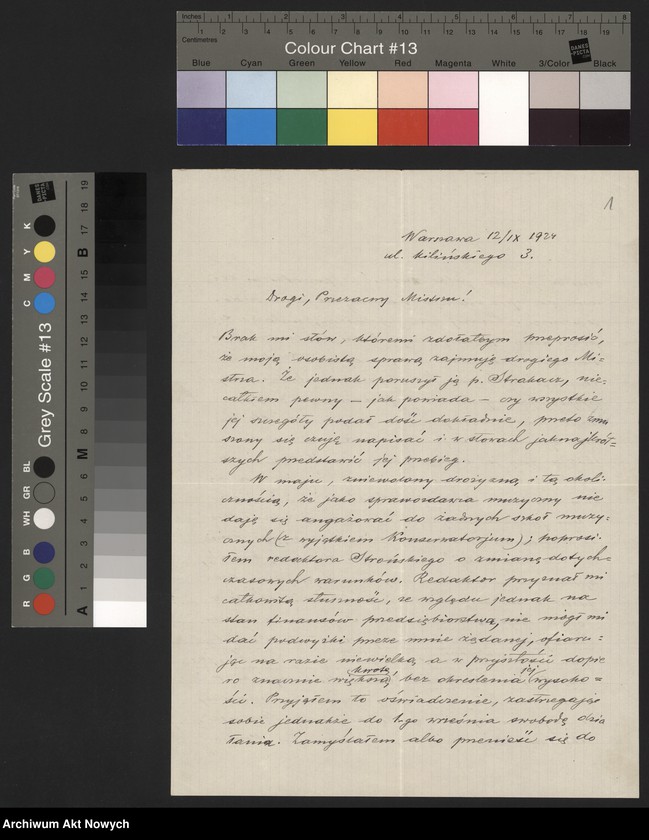 Inches 1 2 3 4 5 6 7 8
Centimetres 1 2 3 4 5 6 7 8 9 10 11 12 13 14 15 16 17 18 19
Colour Chart #13
DANES PICTA .COM
Blue Cyan Green Yellow Red Magenta White 3/Color Black
Grey Scale #13
DANES PICTA .COM
C M Y K
R G B WH GR BL
A 1 2 3 4 5 6 M 8 9 10 11 12 13 14 15 B 17 18 19
1
Warszawa 12/IX 1924
ul. Kilińskiego 3.
Drogi, Przezacny Mistrzu!
Brak mi słów, któremi zdołałbym przeprosić,
że moją osobistą sprawą zajmuję drogiego Mi-
strza. Że jednak poruszył ją p. Strakacz, nie-
całkiem pewny – jak powiada – czy wszystkie
jej szczegóły podał dość dokładnie, przeto zmu
szony się czuję napisać i w słowach jaknajkrót=
szych przedstawić jej przebieg.
W maju, zniewolony drożyzną i tą okoli-
cznością, że jako sprawozdawca muzyczny nie
dają się angażować do żadnych szkół muzy-
cznych (z wyjątkiem Konserwatorjum); poprosi-
łem redaktora Strońskiego o zmianę dotych-
czasowych warunków. Redaktor przyznał mi
całkowitą słuszność, ze względu jednak na
stan finansów przedsiębiorstwa, nie mógł mi
dać podwyżki przeze mnie żądanej, ofiaru=
jąc na razie niewielką, a w przyszłości dopie
ro znacznie większą kwotę, bez określenia jej wysoko=
ści. Przyjąłem to oświadczenie, zastrzegając
sobie jednakże do 1-go września swobodę dzia
łania. Zamyślałem albo przenieść się do
Archiwum Akt Nowych